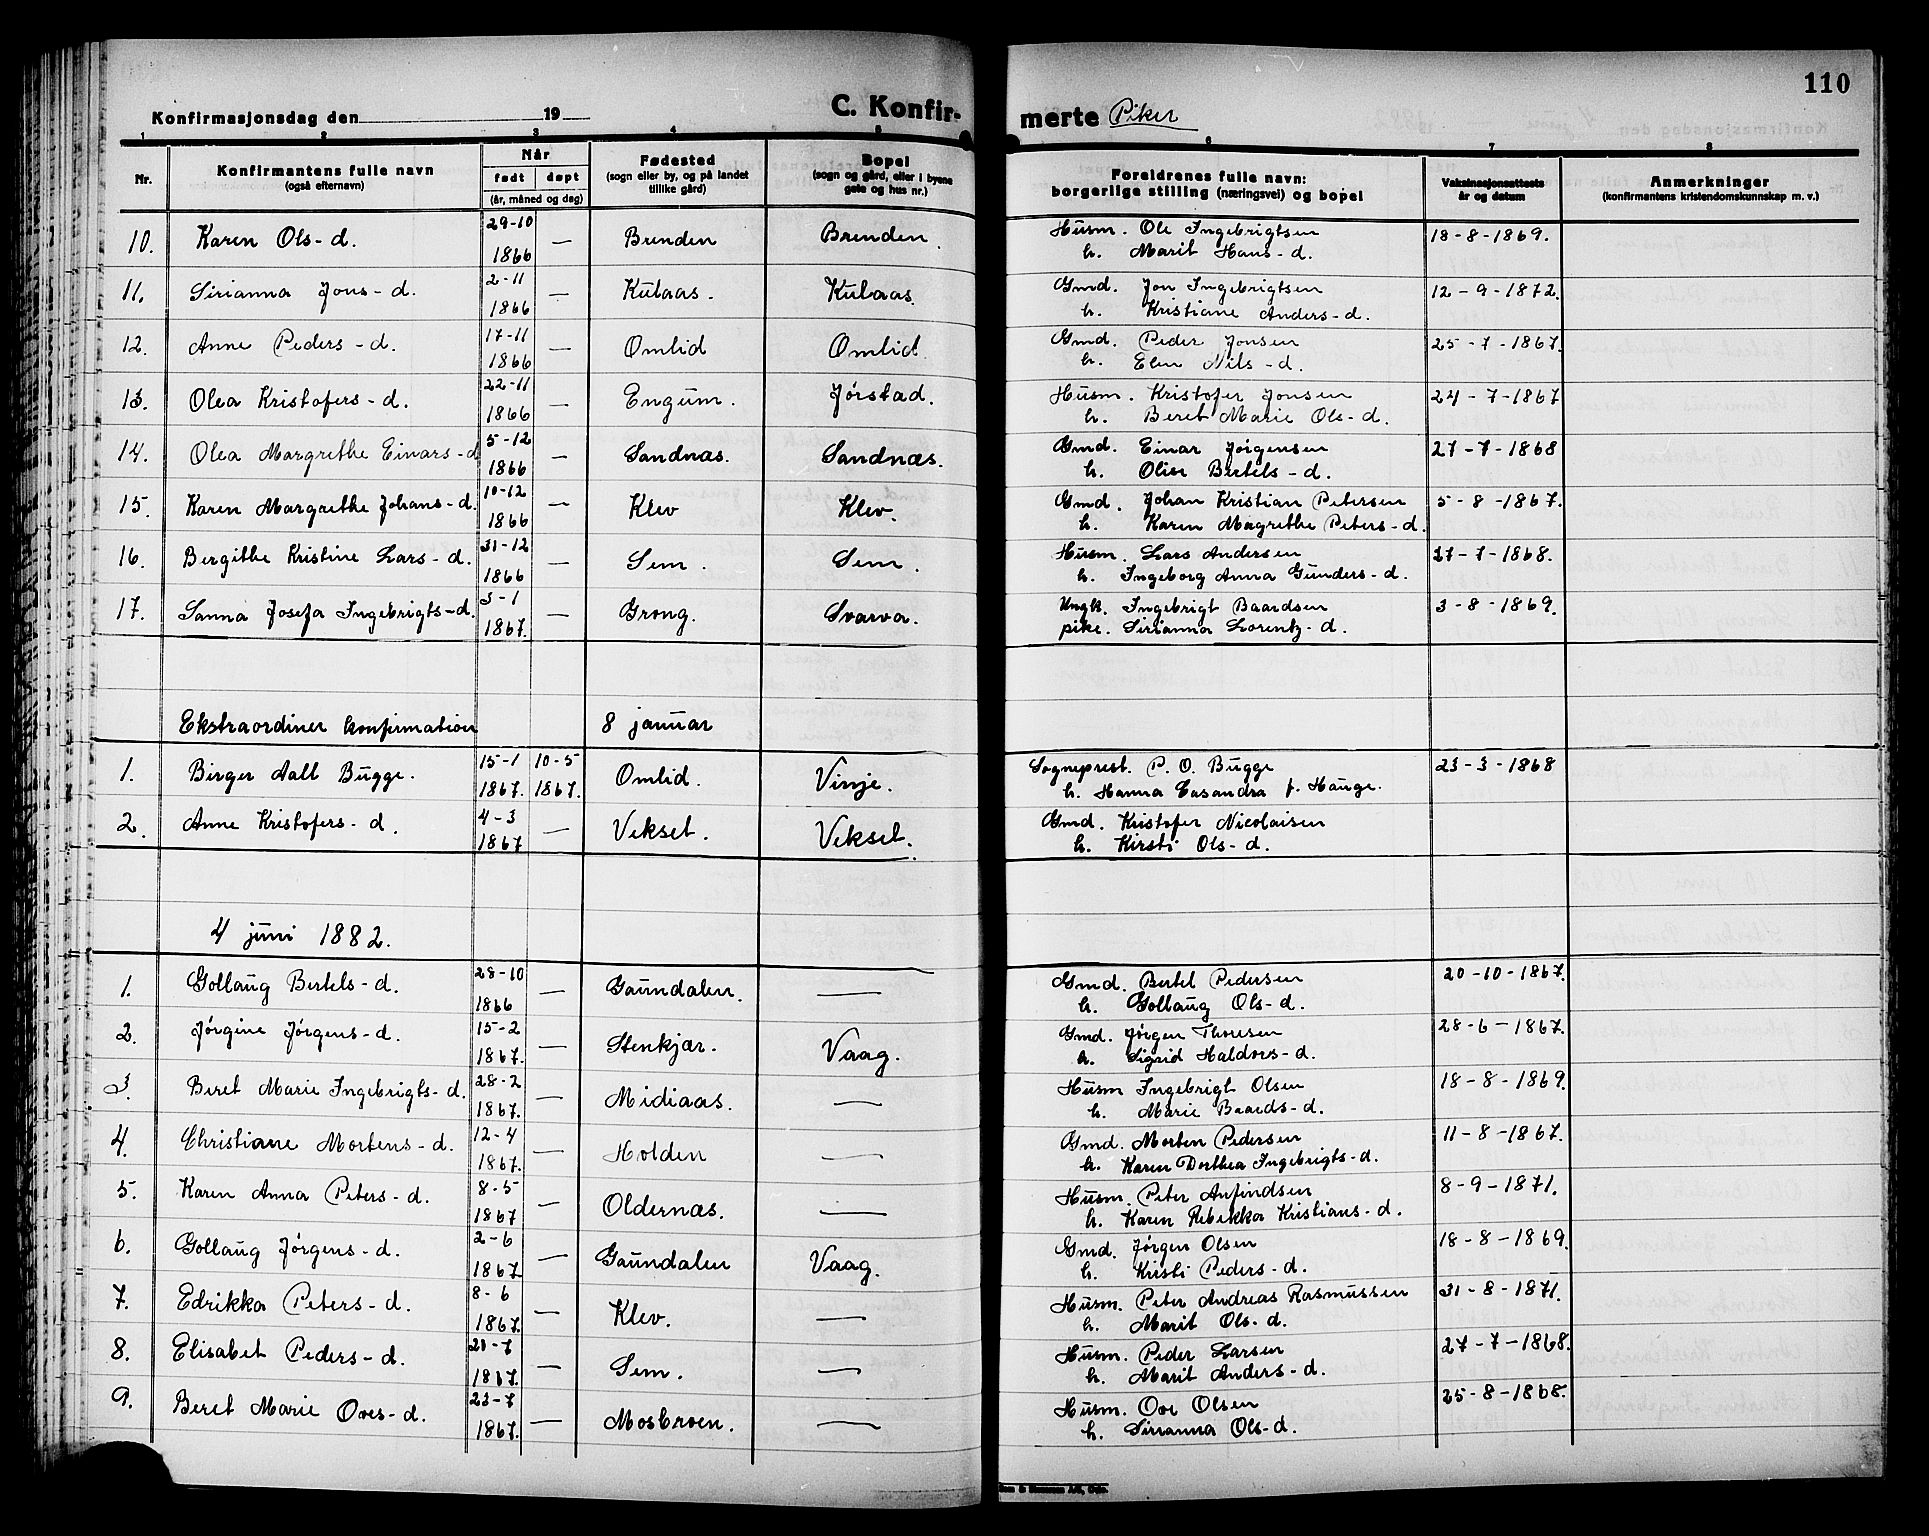 110
Konfirmasjonsdag den 19
C. Konfir-
merte Piker
1 2 3 4 5 6 7 8
Nr.
Konfirmantens fulle navn
(også efternavn)
Når
født døpt
(år, måned og dag)
Fødested
(sogn eller by, og på landet
tillike gård)
Bopel
(sogn og gård, eller i byene
gate og hus nr.)
Foreldrenes fulle navn:
borgerlige stilling (næringsvei) og bopel
Vaksinasjonsattests
år og datum
Anmerkninger
(konfirmantens kristendomskunnskap m. v.)
10. Karen Ols-d. 29-10 1866 — Brenden Brenden. Husm. Ole Ingebrigtsen 18-8-1869.
h. Marit Hans-d.
11. Sirianna Jons-d. 2-11 1866 — Kulaas. Kulaas. Gmd. Jon Ingebrigtsen 12-9-1872.
h. Kristiane Anders-d.
12. Anne Peders-d. 17-11 1866 — Omlid Omlid. Gmd. Peder Jonsen 25-7-1867.
h. Elen Nils-d.
13. Olea Kristofers-d. 22-11 1866 — Engum. Jørstad. Husm. Kristofer Jonsen 24-7-1867
h. Beret Marie Ols-d.
14. Olea Margrethe Einars-d 5-12 1866 — Sandnæs. Sandnæs. Gmd. Einar Jørgensen 27-7-1868
h. Oline Bertels-d.
15. Karen Margrethe Johans-d. 10-12 1866 — Klev Klev. Gmd. Johan Kristian Petersen 5-8-1867.
h. Karen Magrethe Peters-d.
16. Bergithe Kristine Lars-d. 31-12 1866 — Sem. Sem. Husm. Lars Andersen 27-7-1868.
h. Ingeborg Anna Gunders-d.
17. Sanna Josefa Ingebrigts-d. 3-1 1867. — Grong. Svarva. Ungk. Ingebrigt Baardsen 3-8-1869.
pike. Sirianna Lorentz-d.
Ekstraordiner konfirmation 8 januar
1. Birger Aall Bugge. 15-1 1867. 10-5 1867. Omlid. Vinje. Sogneprest. P. O. Bugge 23-3-1868
h. Hanna Casandra f. Hauge.
2. Anne Kristofers-d. 4-3 1867 — Vekset. Vekset. Gmd. Kristofer Nicolaisen
h. Kirsti Ols-d.
4 juni 1882.
1. Gollaug Bertels-d. 28-10 1866 — Gaundalen. — Gmd. Bertel Pedersen 20-10-1867.
h. Gollaug Ols-d.
2. Jørgine Jørgens-d. 15-2 1867. — Stenkjær. Vaag. Gmd. Jørgen Thoresen 28-6-1867.
h. Sigrid Haldors-d.
3. Beret Marie Ingebrigts-d. 28-2 1867. — Midiaas. — Husm Ingebrigt Olsen 18-8-1869.
h. Marie Baards-d.
4. Christiane Mortens-d. 12-4 1867. — Holden — Gmd. Morten Pedersen 11-8-1867.
h. Karen Dorthea Ingebrigts-d.
5. Karen Anna Peters-d. 8-5 1867 — Oldernæs. — Husm. Peter Anfindsen 8-9-1871.
h. Karen Rebekka Kristians-d.
6. Gollaug Jørgens-d. 2-6 1867 — Gaundalen Vaag. Gmd. Jørgen Olsen 18-8-1869.
h. Kristi Peders-d.
7. Edrikka Peters-d. 8-6 1867. — Klev. — Husm. Peter Andreas Rasmussen 31-8-1871.
h. Marit Ols-d.
8. Elisabet Peders-d. 20-7 1867. — Sem. — Husm. Peder Larsen 27-7-1868.
h. Marit Anders-d.
9. Beret Marie Oves-d. 23-7 1867. — Mosbroen. — Husm. Ove Olsen 25-8-1868.
h. Sirianna Ols-d.